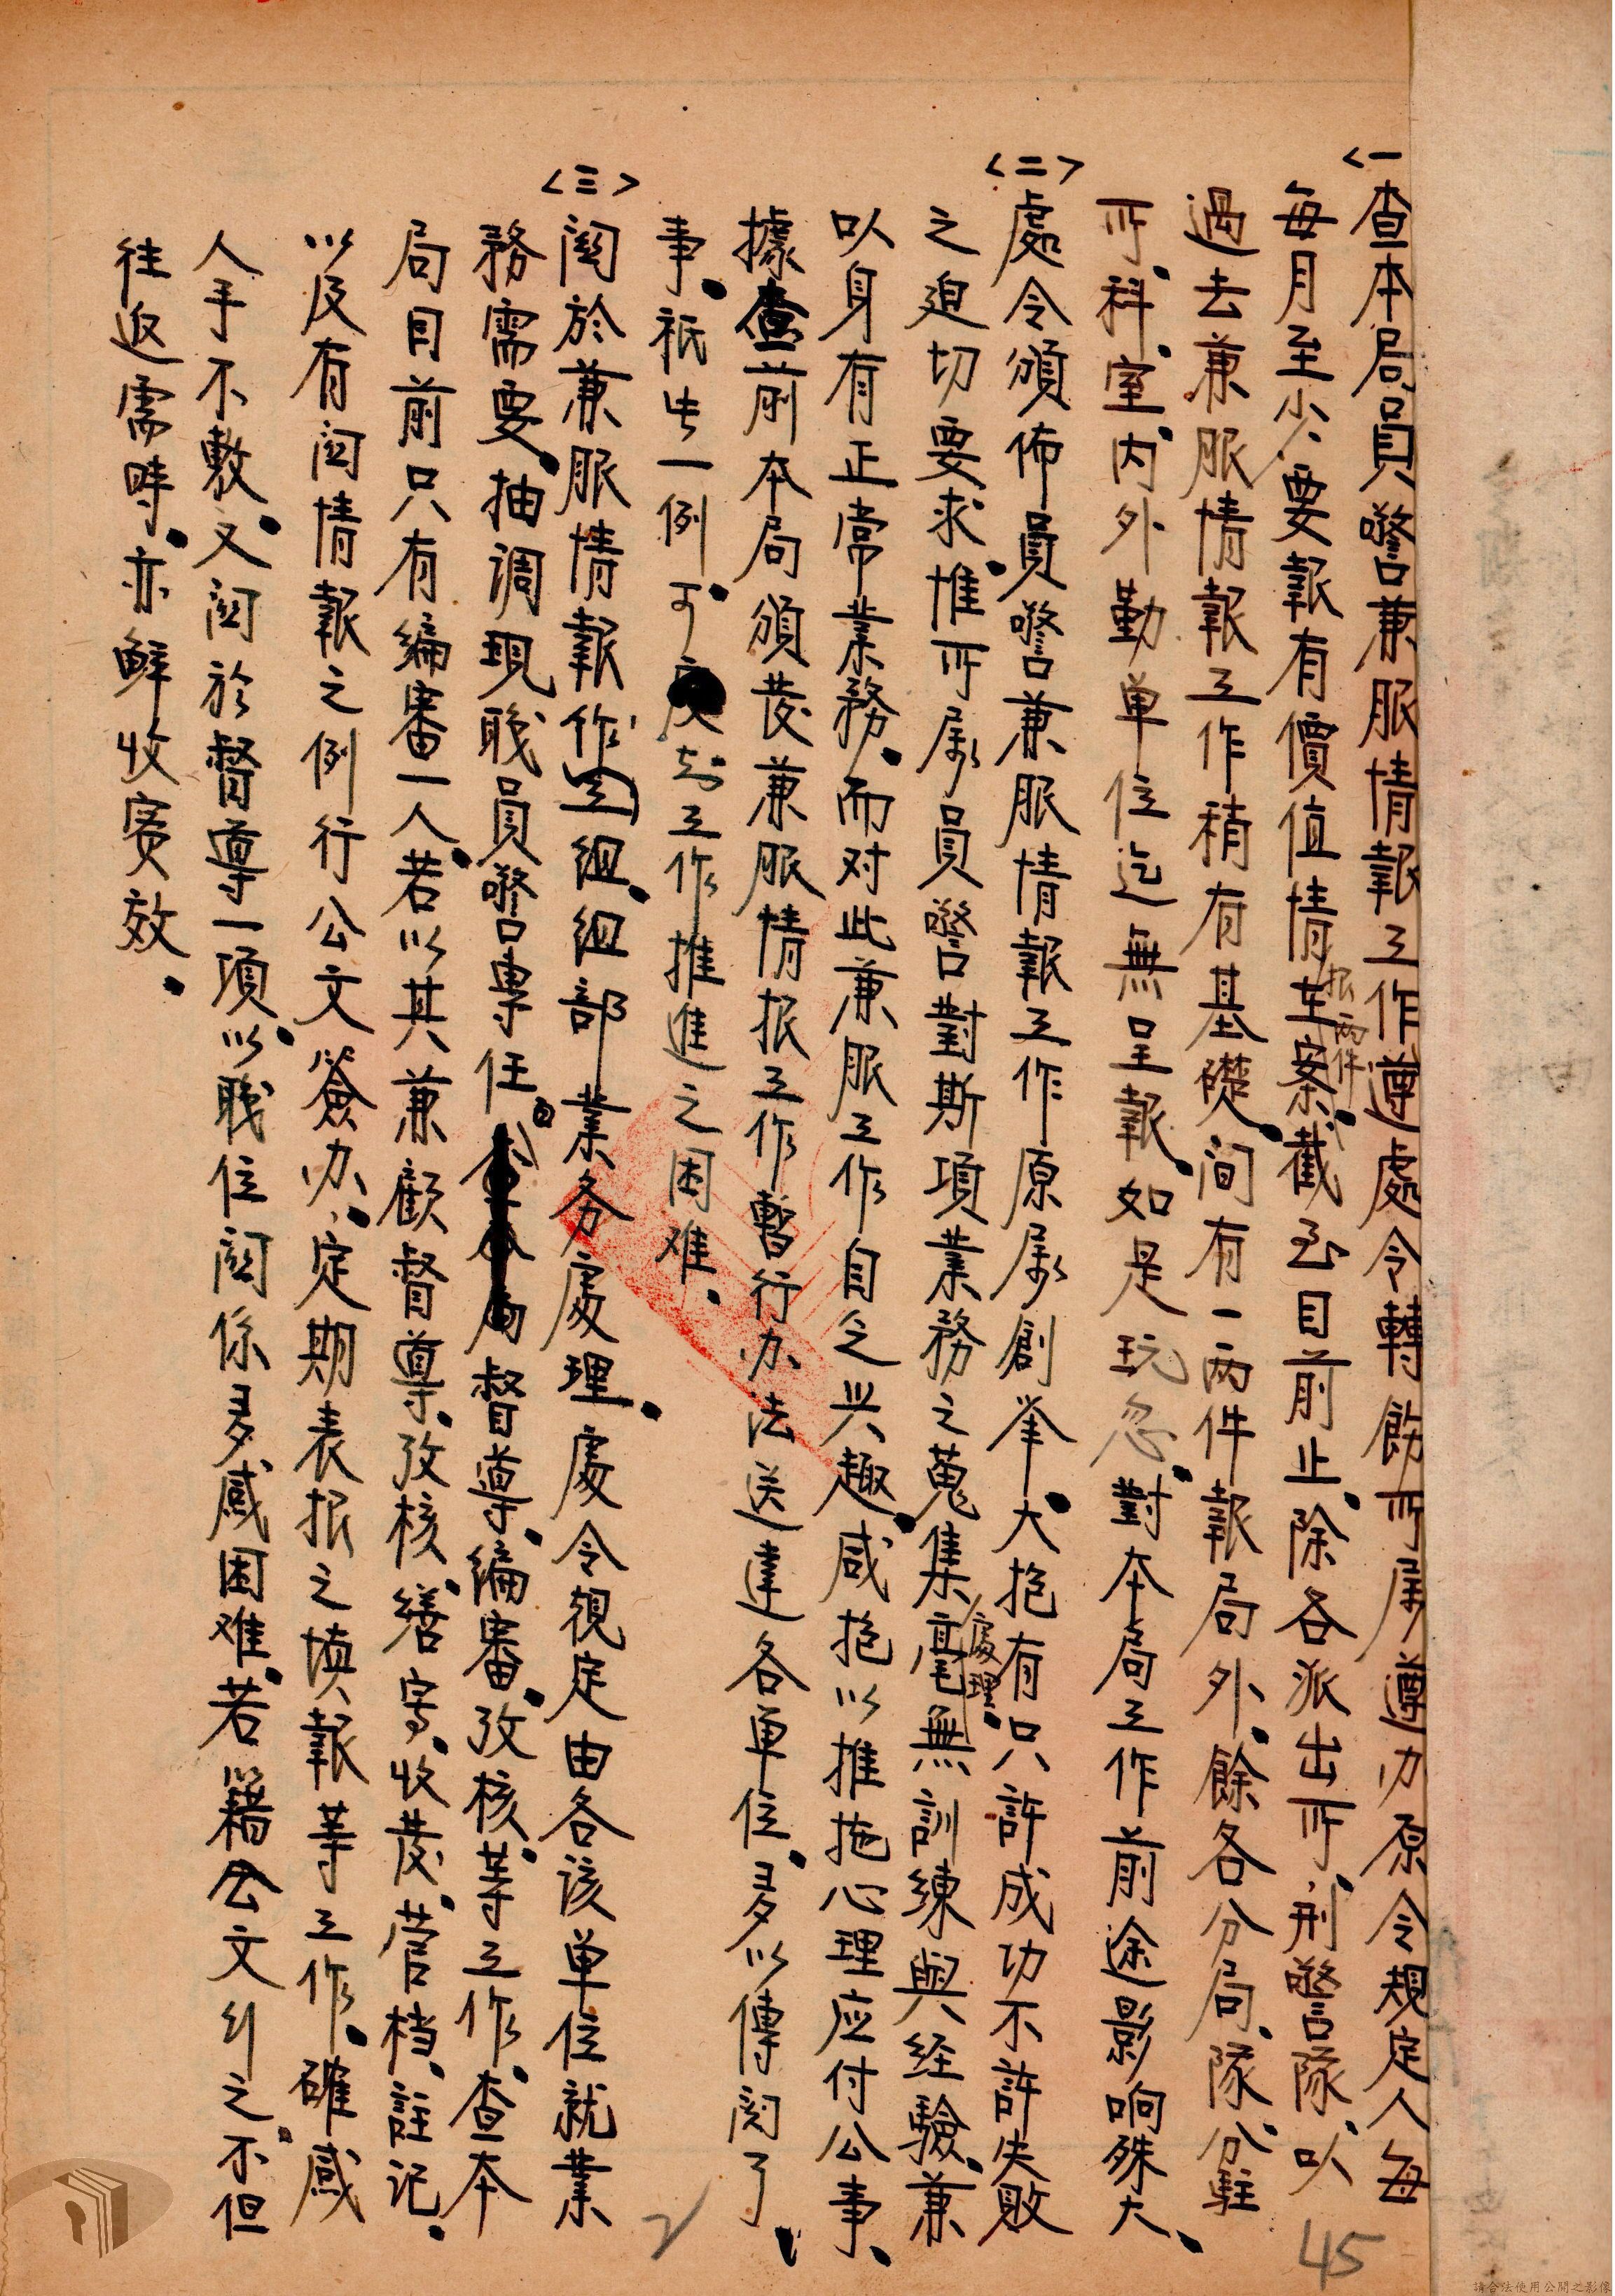 〈一
查本局員警兼服情報工作遵處令轉飭所属遵办原令規定人每
每月至少要報有價值情报兩件在案、截至目前止、除各派出所、刑警隊、以
過去兼服情報工作稍有基礎、间有一两件報局外、餘各分局、隊、分駐
所、科、室、内外勤单位迄無呈報、如是玩忽、對本局工作前途影响殊大、
〈二〉
處令頒佈員警兼服情報工作原属創举、大抱有只許成功不許失敗
之迫切要求、惟所属員警對斯項業務之蒐集處理、毫無訓練與経驗、兼
以身有正常業務、而对此兼服工作自乏兴趣、咸抱以推拖心理应付公事、
據查前本局頒發兼服情报工作暫行办法送達各单位、多以傳閱了
事、祇此一例、可
工作推進之困难.
〈三〉
関於兼服情報作(工)組、組部業务處理、處令規定由各该单位就業
務需要、抽调現職員警專任
督導、編審、攷核、等工作、查本
局目前只有編審一人、若以其兼顧督導、攷核、繕寫、收發、管档、註记、
以及有関情報之例行公文簽办、定期表报之填報等工作、確感
人手不敷、又関於督導一項、以職位関係多感困难、若籍公文行之、不但
往返需時、亦鮮收實效.
45
請合法使用公開之影像